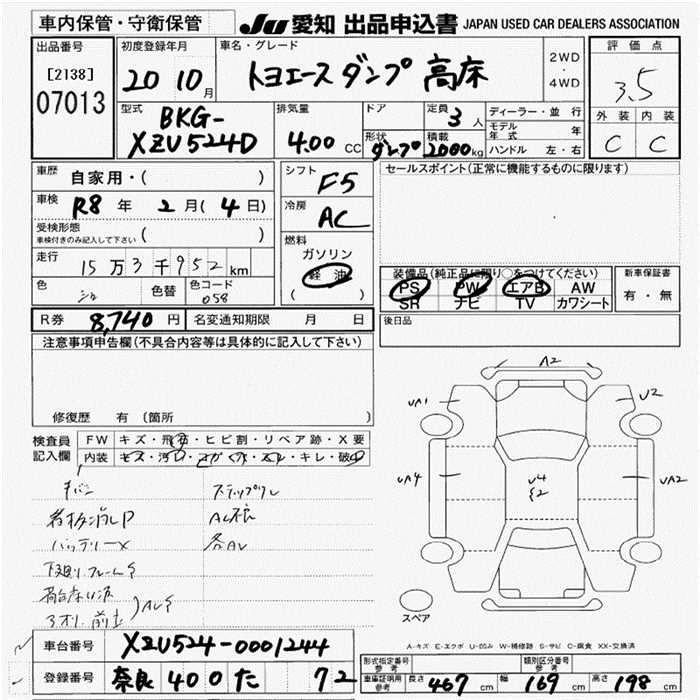 車内保管・守衛保管
JU 愛知 出品申込書 JAPAN USED CAR DEALERS ASSOCIATION
出品番号
[2138]
07013
初度登録年月
20 10月
車名・グレード
トヨエース ダンプ 高床
2WD
・
4WD
評価点
3.5
外装 内装
C C
型式
BKG-
XZU524D
排気量
4.00 CC
ドア
形状
ダンプ
定員
3人
積載
2000kg
ディーラー・並行
モデル年式 年
ハンドル 左・右
車歴
自家用・( )
車検
R8年 2月(4日)
受検形態
車検付きのみ記入して下さい ( )
走行
15万3千952km
色
色替
色コード
058
シフト
F5
冷房
AC
燃料
ガソリン
軽油
( )
セールスポイント(正常に機能するものに限ります)
装備品(純正品に限り○をつけてください)
PS PW エアB AW
SR ナビ TV カワシート
新車保証書
有・無
R券 8,740円 名変通知期限 月 日
後日品
注意事項申告欄(不具合内容等は具体的に記入して下さい)
修復歴 有 (箇所 )
検査員
記入欄
FW キズ・飛石・ヒビ割・リペア跡・X要
内装 キズ・汚レ・コゲ・穴・スレ・キレ・破レ
看板消しP
バッテリーX
下廻りフレームS
AC
A2
UA1
U2
UA4
U4
UA2
スペア
A-キズ E-エクボ U-凹み W-補修跡 S-サビ C-腐食 XX-交換済
車台番号 XZU524-0001244
登録番号 奈良 400 た 72
形式指定番号
参考
類別区分番号
参考
車庫証明用
参考
長さ 467cm 幅 169cm 高さ 198cm